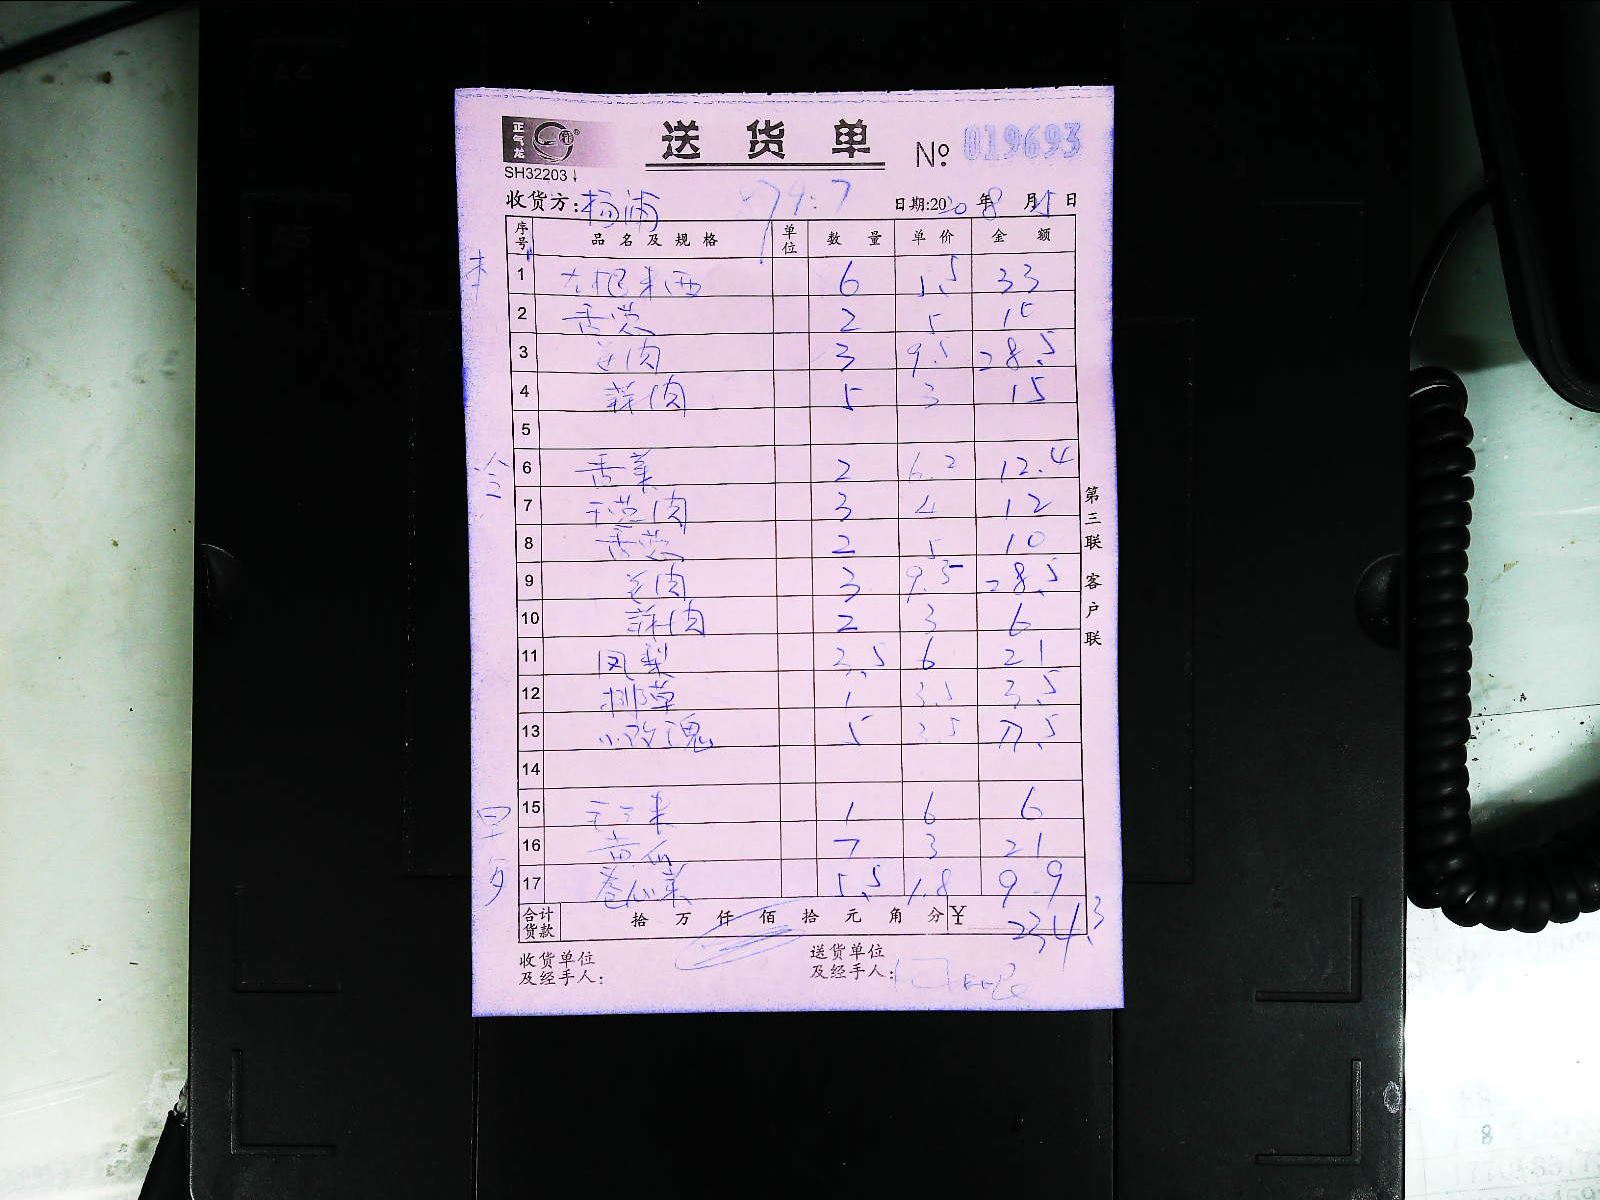 正气龙
送货单 № 019693
SH32203↓
收货方:杨浦 79.7 日期:2020年8月15日
序号 品名及规格 单位 数量 单价 金额
1 6 5.5 33
2 香葱 2 5 10
3 毛肉 3 9.5 28.5
4 蒜肉 5 3 15
5
6 香菜 2 6.2 12.4
7 干葱肉 3 4 12
8 香葱 2 5 10
9 毛肉 3 9.5 28.5
10 蒜肉 2 3 6
11 凤梨 3.5 6 21
12 排草 1 3.5 3.5
13 小玫瑰 5 3.5 17.5
14
15 1 6 6
16 黄瓜 7 3 21
17 卷心菜 5.5 1.8 9.9
合计货款 拾万仟佰拾元角分 ¥ 234.3
收货单位及经手人:
送货单位及经手人:
第三联 客户联